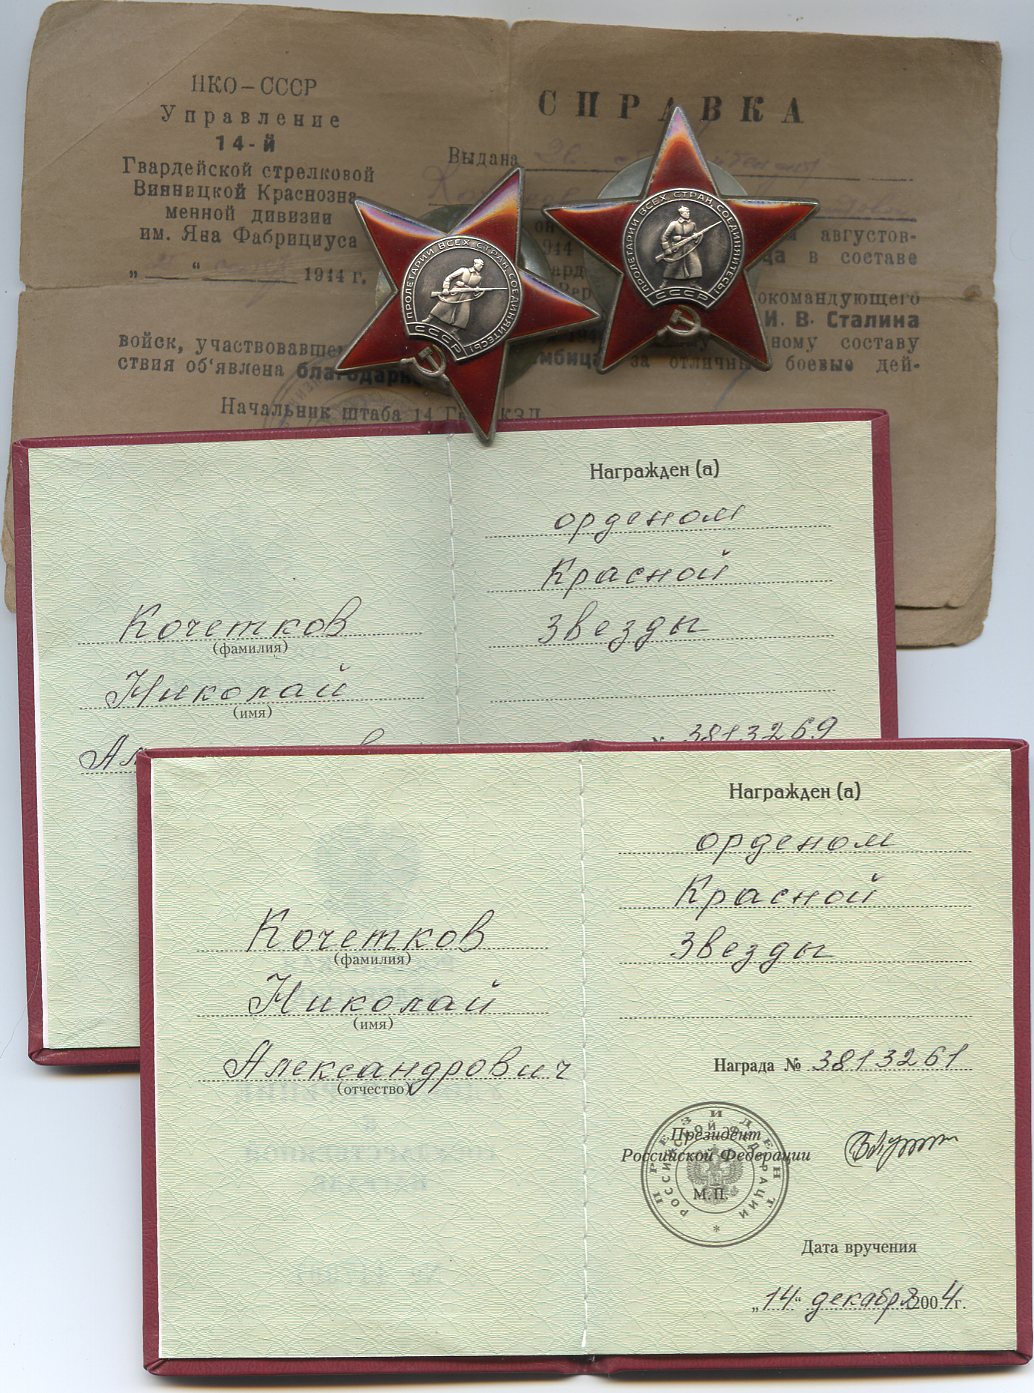 НКО – СССР
Управление
14-й
Гвардейской стрелковой
Винницкой Краснозна-
менной дивизии
им. Яна Фабрициуса
1944 г.
СПРАВКА
Выдана
августов-
1944
в составе
окомандующего
И. В. Сталина
войск, участвовавше
ному составу
ствия об'явлена благодарно
за отличны боевые дей-
Начальник штаба 14 Гв
ПРОЛЕТАРИИ ВСЕХ СТРАН, СОЕДИНЯЙТЕСЬ!
СССР
ПРОЛЕТАРИИ ВСЕХ СТРАН, СОЕДИНЯЙТЕСЬ!
СССР
Кочетков
(фамилия)
Николай
(имя)
Награжден (а)
орденом
Красной
Звезды
№ 3813269
Кочетков
(фамилия)
Николай
(имя)
Александрович
(отчество)
Награжден (а)
орденом
Красной
Звезды
Награда № 3813261
Президент
Российской Федерации
М.П.
ПРЕЗИДЕНТ
РОССИЙСКОЙ ФЕДЕРАЦИИ
Дата вручения
„14“ декабря 2004 г.